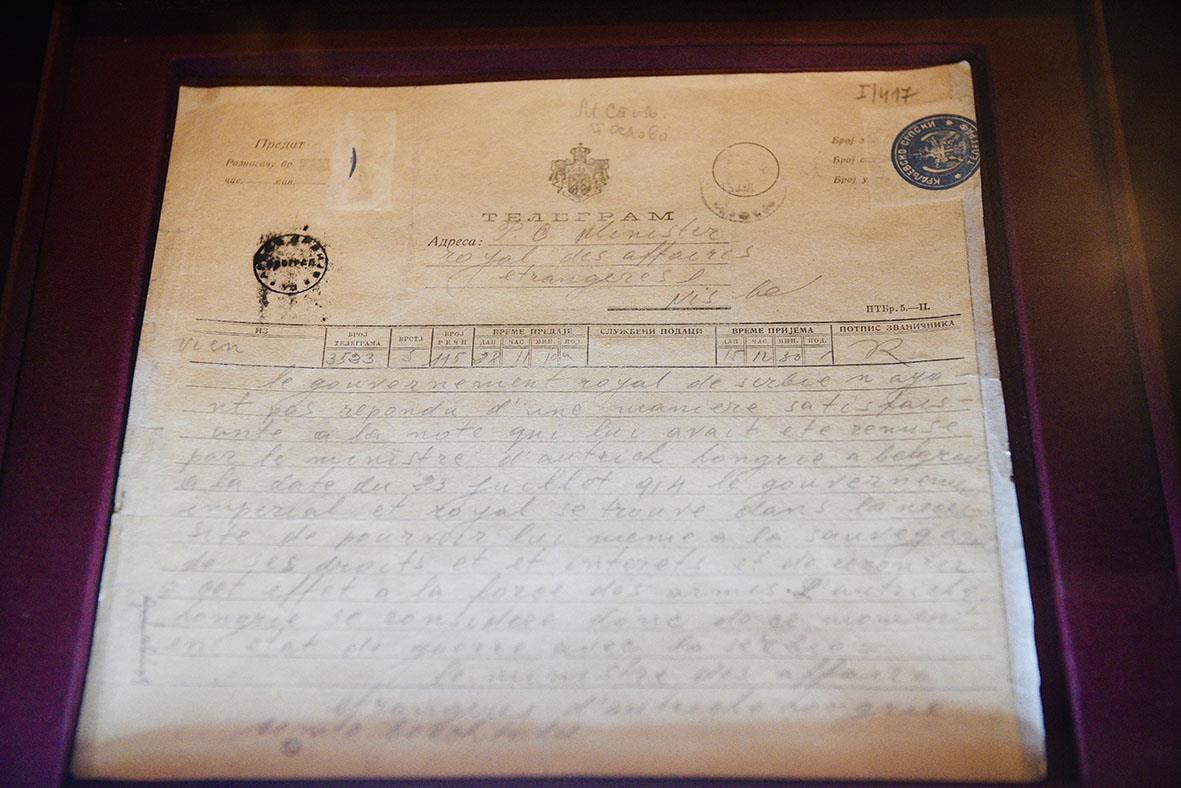 I/417
Предат
Разносачу бр.
час. мин.
Број
Број
Број
КРАЉЕВСКО СРПСКИ
ТЕЛЕГРАМ
Адреса: P. C Minister
royal des affaires
etrangeres
Nis be
ПТБр. 5.—II.
ИЗ БРОЈ ТЕЛЕГРАМА ВРСТА БРОЈ РЕЧИ ВРЕМЕ ПРЕДАЈЕ СЛУЖБЕНИ ПОДАЦИ ВРЕМЕ ПРИЈЕМА ПОТПИС ЗВАНИЧНИКА
ДАН ЧАС. МИН. ПОД. ДАН ЧАС. МИН. ПОД.
vien 3523 5 115 28 11 10 12 30
le gouvernement royal de serbie n'aya
nt pas repondu d'une maniere satisfais
ante a la note qui lui avait ete remise
par le ministre d'autrich hongrie a belgrade
a la date du 23 juillot 914 le gouverneme
imperial et royal se trouve dans la neces
site de pourvoir lui meme a la sauvegar
de ses droits et et interets et de recourir
a cet effet a la force des armes. L'autriche
hongrie se considere donc de ce moment
en etat de guerre avec la serbie =
le ministre des affaires
etrangeres d'autriche hongrie